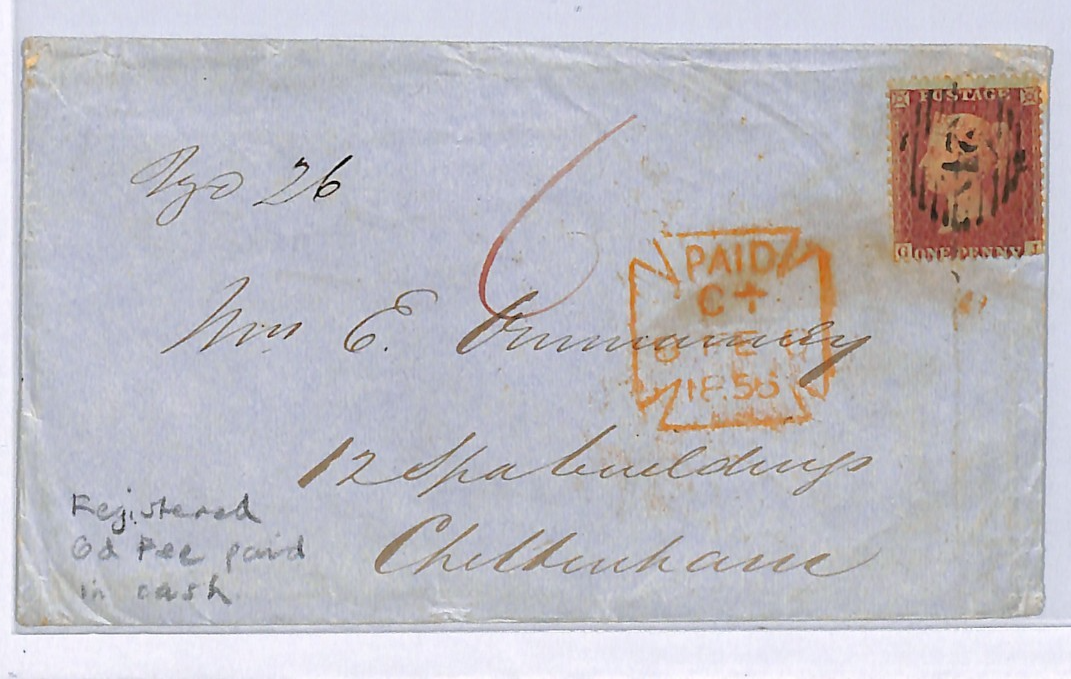 POSTAGE
ONE PENNY
Rgd 26
6
PAID
C+
6 FE 6
1856
Mrs E. Ommanney
12 Spa buildings
Cheltenham
Registered
6d Fee paid
in cash